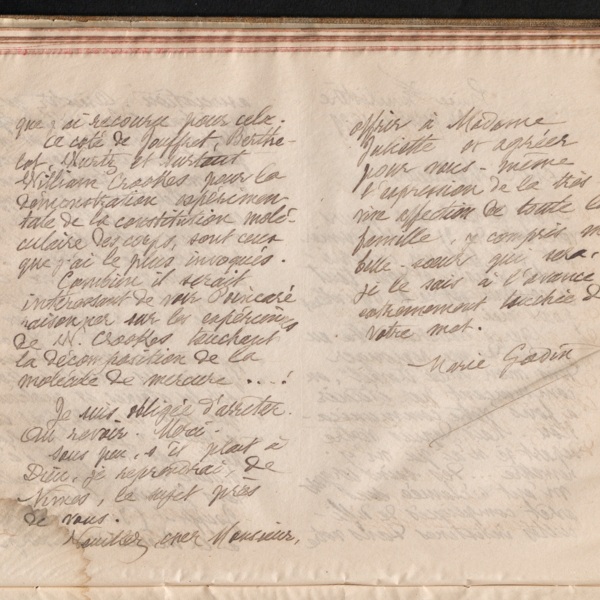 que j'ai recouru pour cela.
à côté de Jouffret, Berthe-
lot, Wurtz et surtout
William Crookes pour la
démonstration expérimen-
tale de la constitution molé-
culaire des corps, sont ceux
que j'ai le plus invoqués.
Combien il serait
intéressant de voir Poincaré
raisonner sur les expériences
de W. Crookes, touchant
la décomposition de la
molécule de mercure ....!
Je suis obligée d'arrêter.
Au revoir. Merci.
Sous peu, s'il plaît à
Dieu, je reprendrai, de
Nîmes, le sujet près
de vous.
Veuillez, cher Monsieur,
offrir à Madame
Juliette et agréer
pour vous-même
l'expression de la très
vive affection de toute la
famille, y compris m
belle-sœur qui sera,
je le sais à l'avance
extrêmement touchée de
votre mot.
Marie Godin